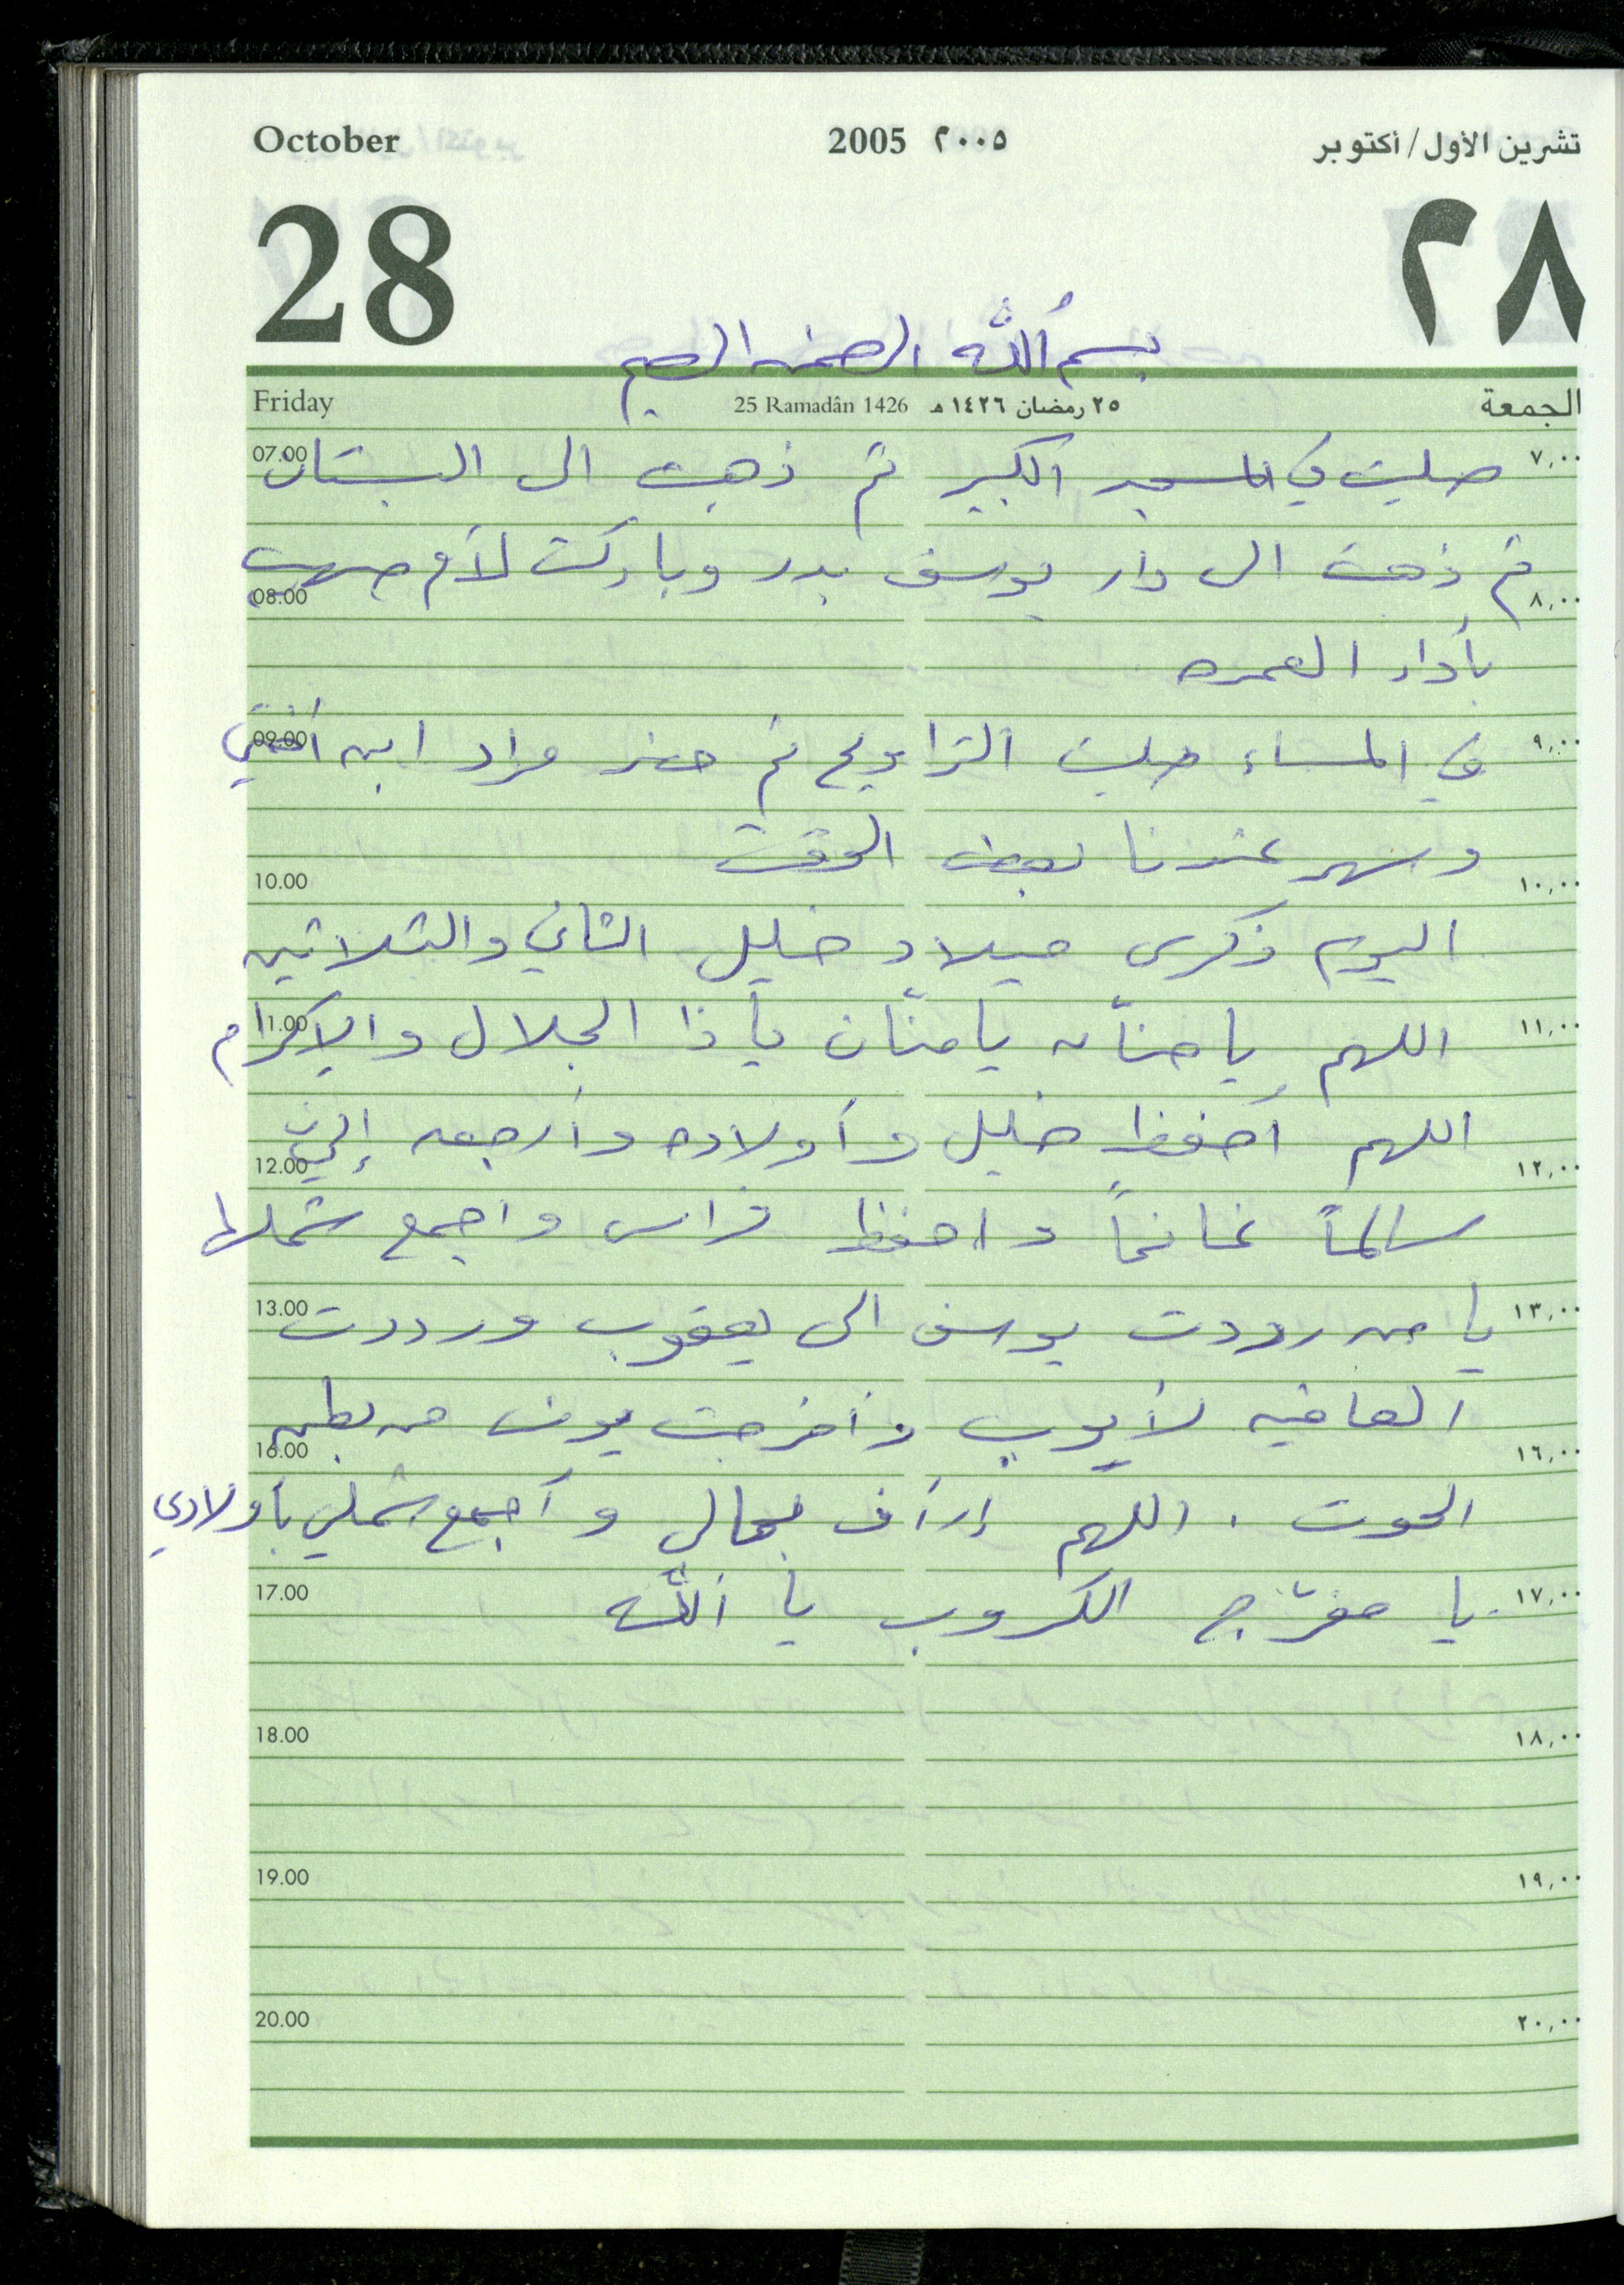 October 2005 ٢٠٠٥ تشرين الأول/أكتوبر
28 ٢٨
بسم الله الرحمن الرحيم
Friday 25 Ramadân 1426 ٢٥ رمضان ١٤٢٦ هـ الجمعة
07.00 صليت في المسجد الكبير ثم ذهبت الى البستان ٧,٠٠
ثم ذهبت الى دار يوسف بدر وباركت لأم صهيب
08.00 ٨,٠٠
بأداء العمره
09.00 في المساء صليت التراويح ثم حضر مراد ابن أختي ٩,٠٠
وسهر عندنا بعض الوقت
10.00 ١٠,٠٠
اليوم ذكرى ميلاد خليل الثاني والثلاثين
11.00 اللهم يا حنّان يا منّان يا ذا الجلال والإكرام ١١,٠٠
اللهم أحفظ خليل وأولاده وأرجعه إليّ
12.00 ١٢,٠٠
سالماً غانماً واحفظ فراس واجمع شملها
13.00 يا من رددت يوسف الى يعقوب ورددت ١٣,٠٠
العافيه لأيوب وأخرجت يونس من بطن
16.00 ١٦,٠٠
الحوت . اللهم إرأف بحالي وأجمع شملي بأولادي
17.00 يا مفرّج الكروب يا الله ١٧,٠٠
18.00 ١٨,٠٠
19.00 ١٩,٠٠
20.00 ٢٠,٠٠